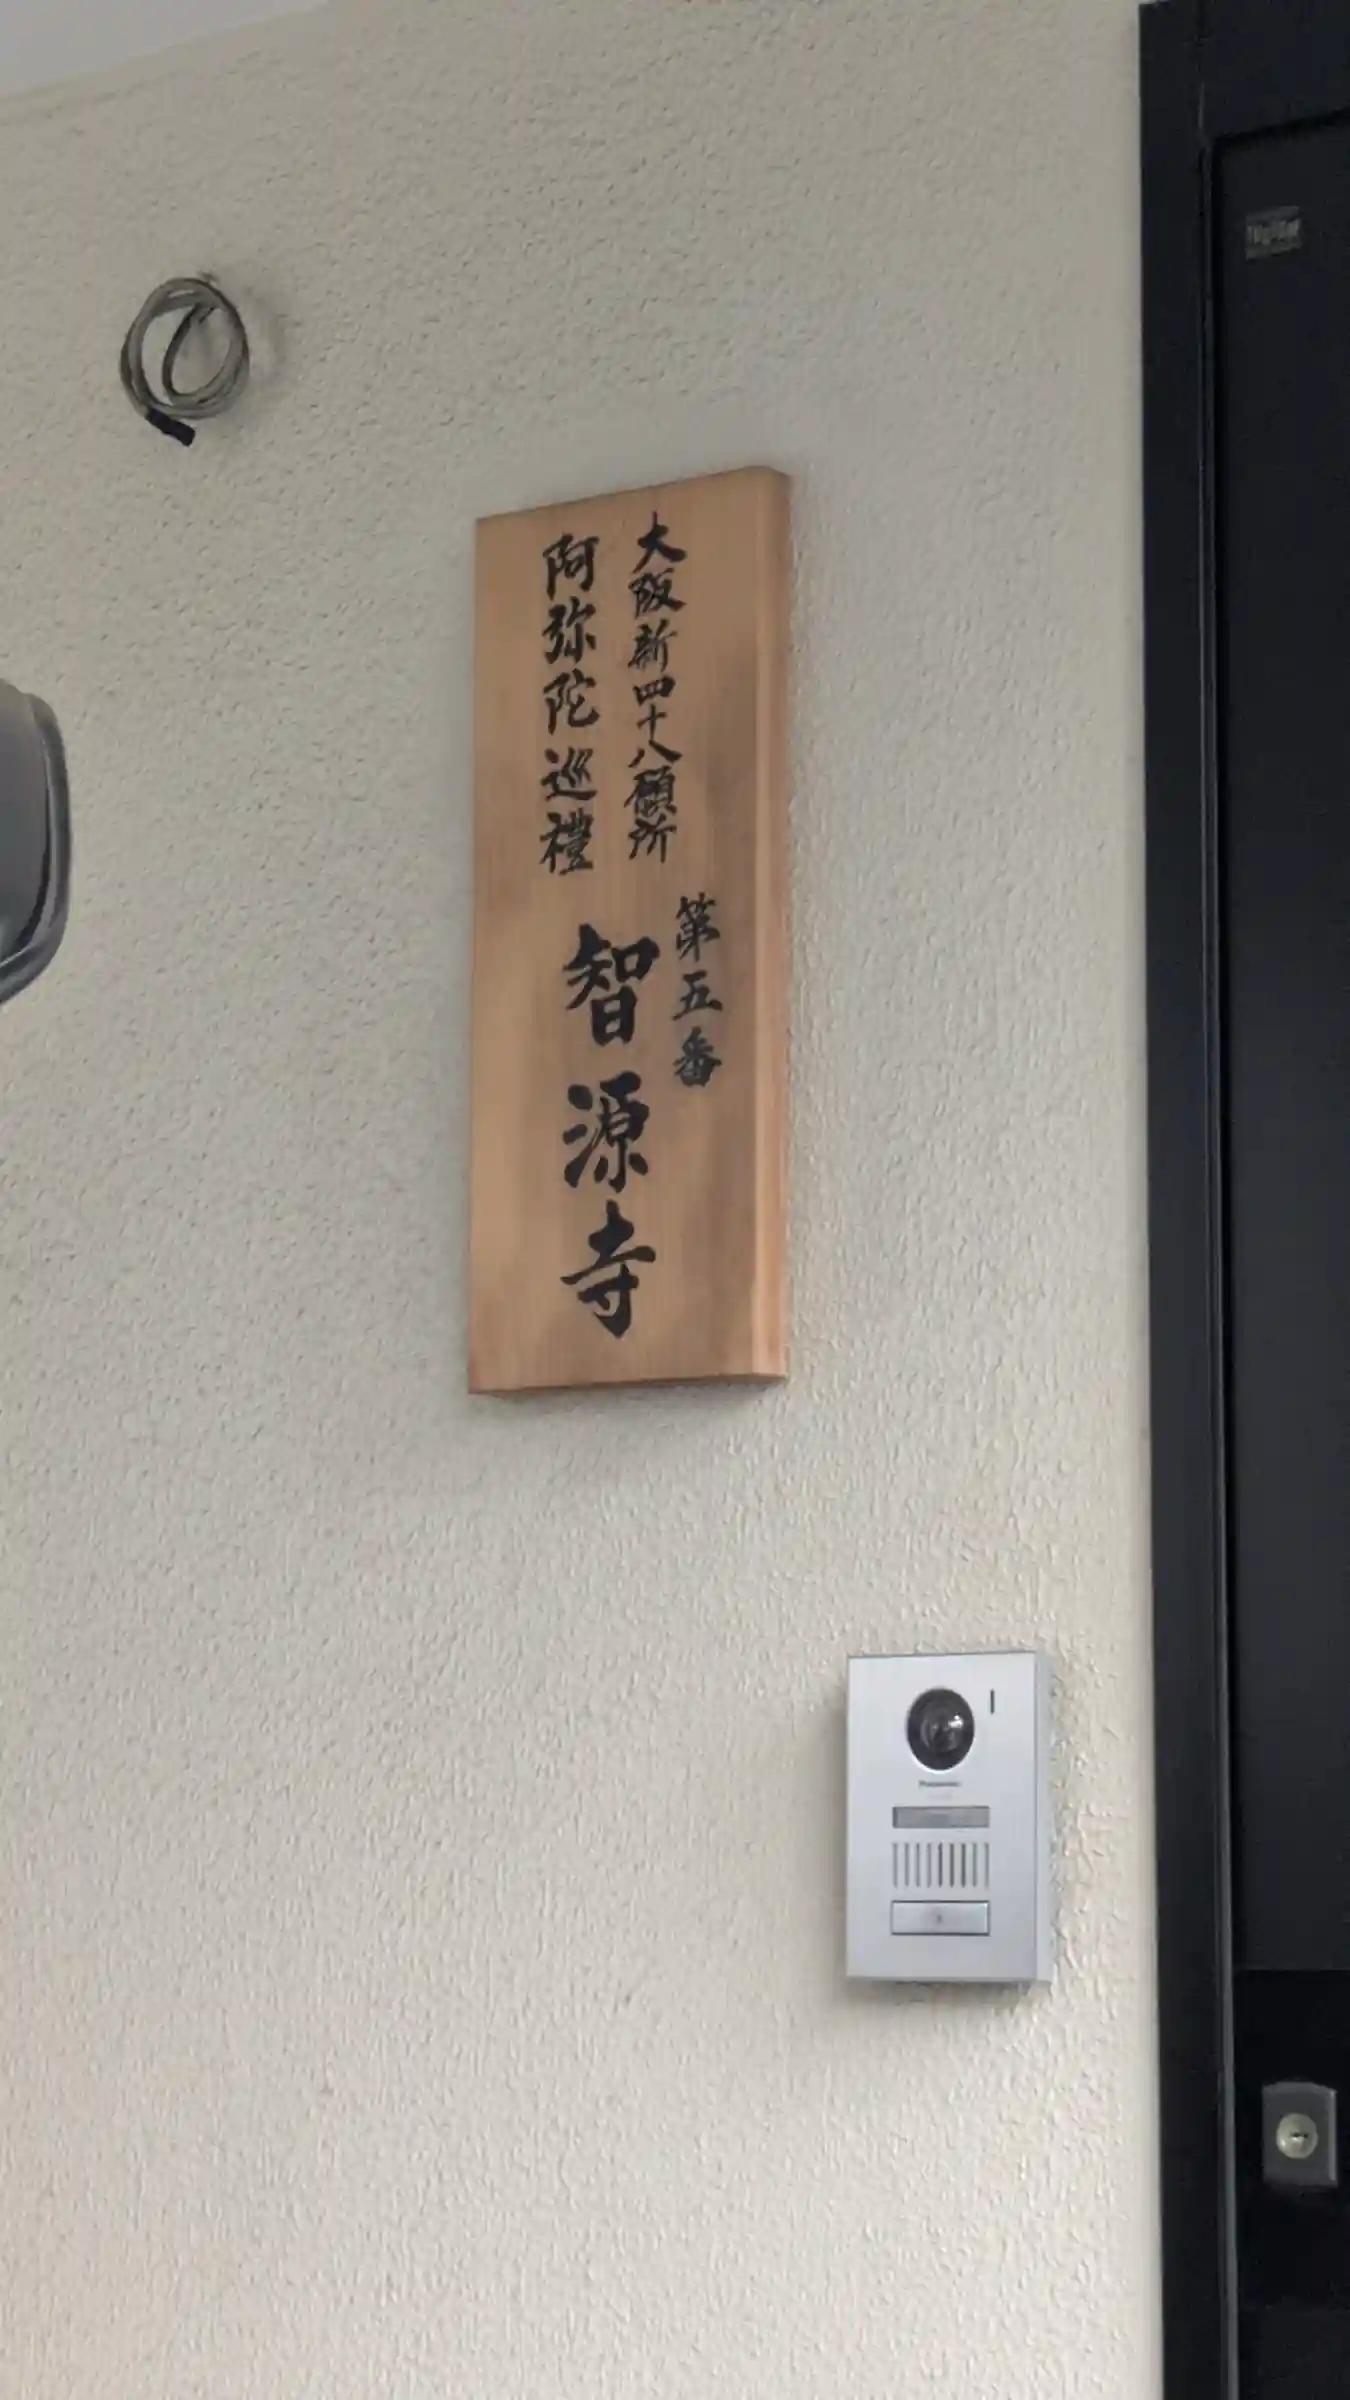 大阪新四十八願所
阿弥陀巡禮
第五番
智源寺
Panasonic